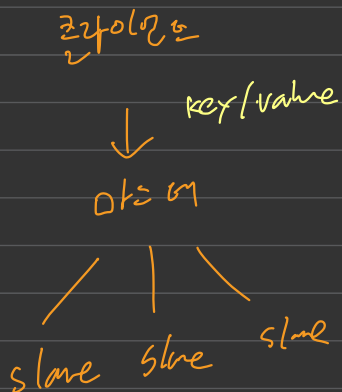 클라이언트
key/value
마스터
slave
slave
slave